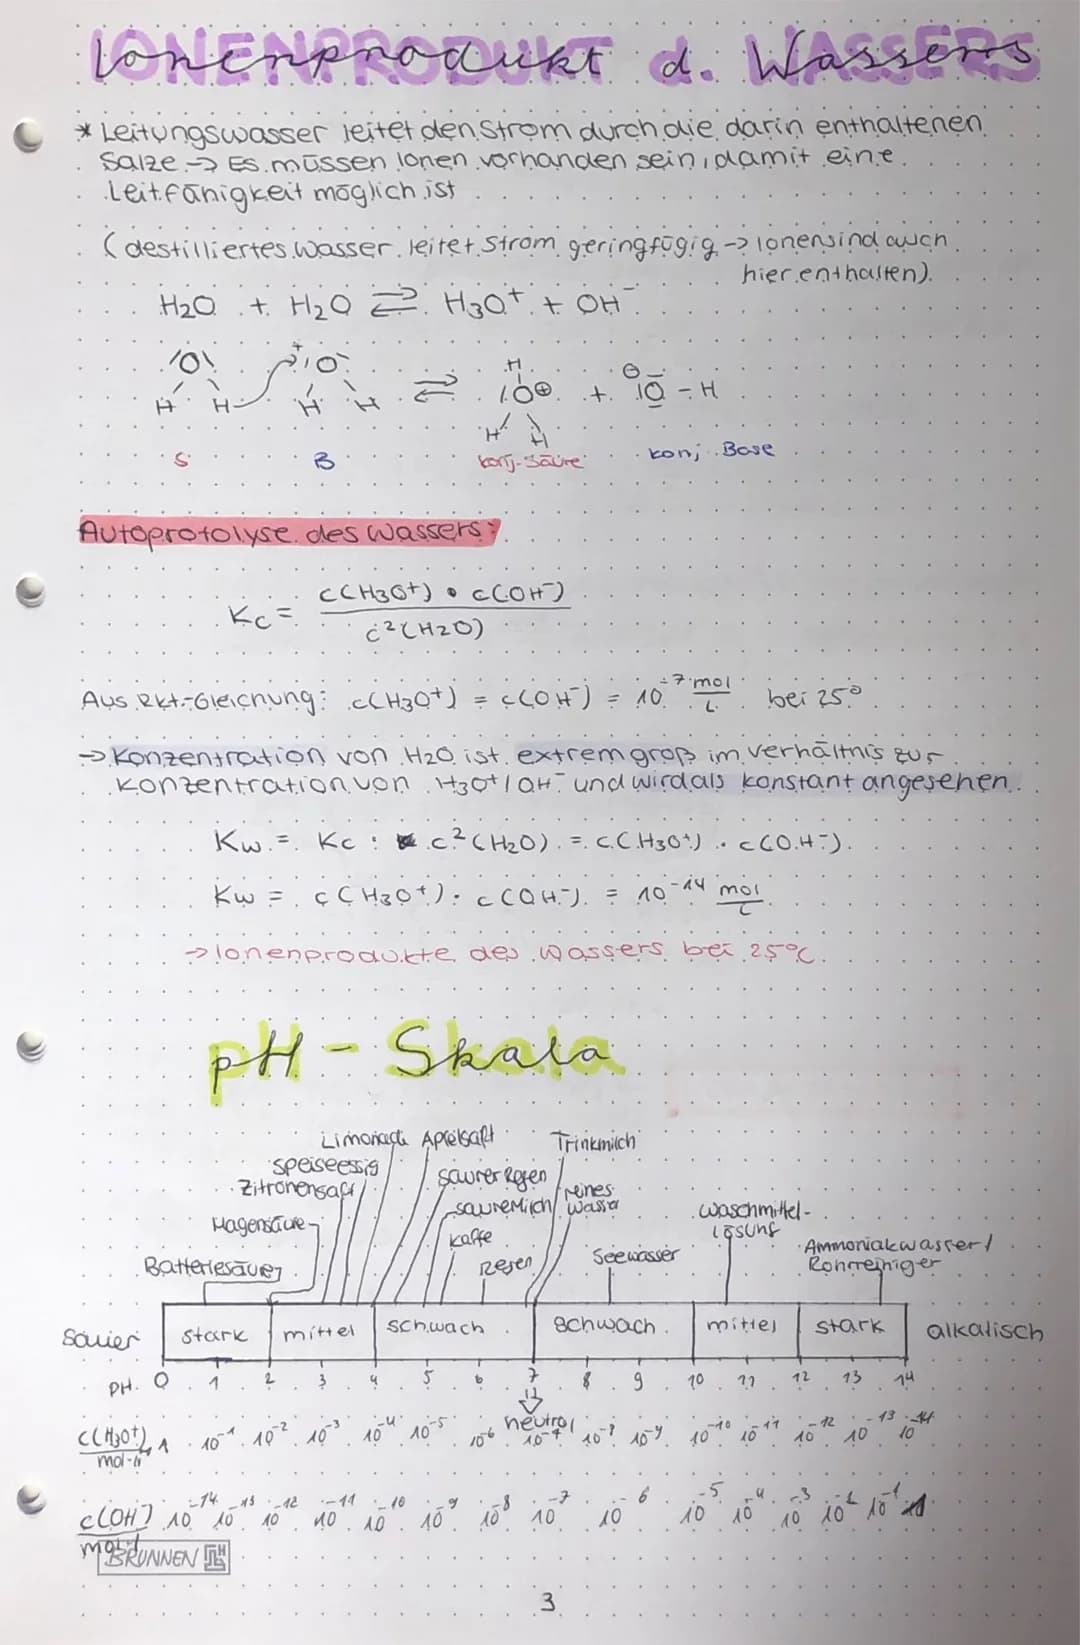 IONENPRODUKT d. WASSERS
* Leitungswasser leitet den Strom durch die darin enthaltenen
Salze → Es müssen Ionen vorhanden sein, damit eine
Leitfähigkeit möglich ist
(destilliertes Wasser leitet Strom geringfügig → Ionen sind auch
hier enthalten).
H2O + H2O ⇌ H3O+ + OH-
H H H H ⇌ H H H O⊕ + ⊖ O - H
S B konj. Säure konj. Base
Autoprotolyse des Wassers:
Kc = c(H3O+) • c(OH-) / c²(H2O)
Aus Rkt.-Gleichung: c(H3O+) = c(OH-) = 10^-7 mol/L bei 25°
→ Konzentration von H2O ist extrem groß im Verhältnis zur
Konzentration von H3O+/OH- und wird als konstant angesehen.
Kw = Kc : c²(H2O) = c(H3O+) · c(OH-)
Kw = c(H3O+) · c(OH-) = 10^-14 mol/L
→ Ionenprodukte des Wassers bei 25°C.
pH - Skala
Limonade Apfelsaft Trinkmilch
Speiseessig saurer Regen
Zitronensaft reines
saure Milch Wasser Waschmittel-
Magensäure Kaffe lösung
Batteriesäure Regen Seewasser Ammoniakwasser/
Rohrreiniger
Sauer stark mittel schwach schwach mittel stark alkalisch
PH 0 1 2 3 4 5 6 7 8 9 10 11 12 13 14
neutral
c(H3O+) 1 10^-1 10^-2 10^-3 10^-4 10^-5 10^-6 10^-7 10^-8 10^-9 10^-10 10^-11 10^-12 10^-13 10^-14
mol·l
c(OH-) 10^-14 10^-13 10^-12 10^-11 10^-10 10^-9 10^-8 10^-7 10^-6 10^-5 10^-4 10^-3 10^-2 10^-1 1
BRUNNEN
3